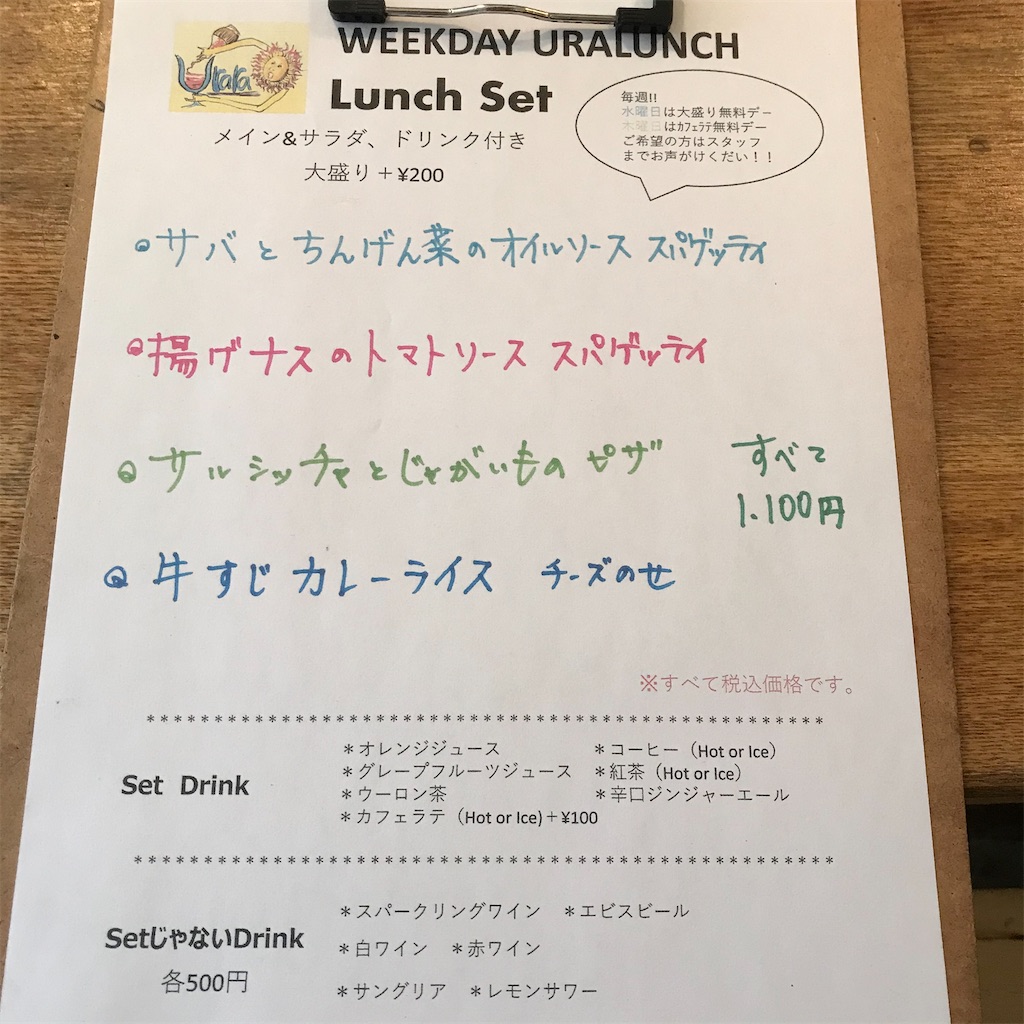 Urara
WEEKDAY URALUNCH
Lunch Set
メイン&サラダ、ドリンク付き
大盛り＋¥200
毎週!!
水曜日は大盛り無料デー
木曜日はｶﾌｪﾗﾃ無料デー
ご希望の方はスタッフ
までお声がけくだい！！
サバとちんげん菜のオイルソース スパゲッティ
揚げナスのトマトソース スパゲッティ
サルシッチャとじゃがいものピザ
すべて
1.100円
牛すじカレーライス チーズのせ
※すべて税込価格です。
****************************************************
Set Drink
＊オレンジジュース ＊コーヒー（Hot or Ice）
＊グレープフルーツジュース ＊紅茶（Hot or Ice）
＊ウーロン茶 ＊辛口ジンジャーエール
＊カフェラテ（Hot or Ice)＋¥100
****************************************************
SetじゃないDrink
各500円
＊スパークリングワイン ＊エビスビール
＊白ワイン ＊赤ワイン
＊サングリア ＊レモンサワー